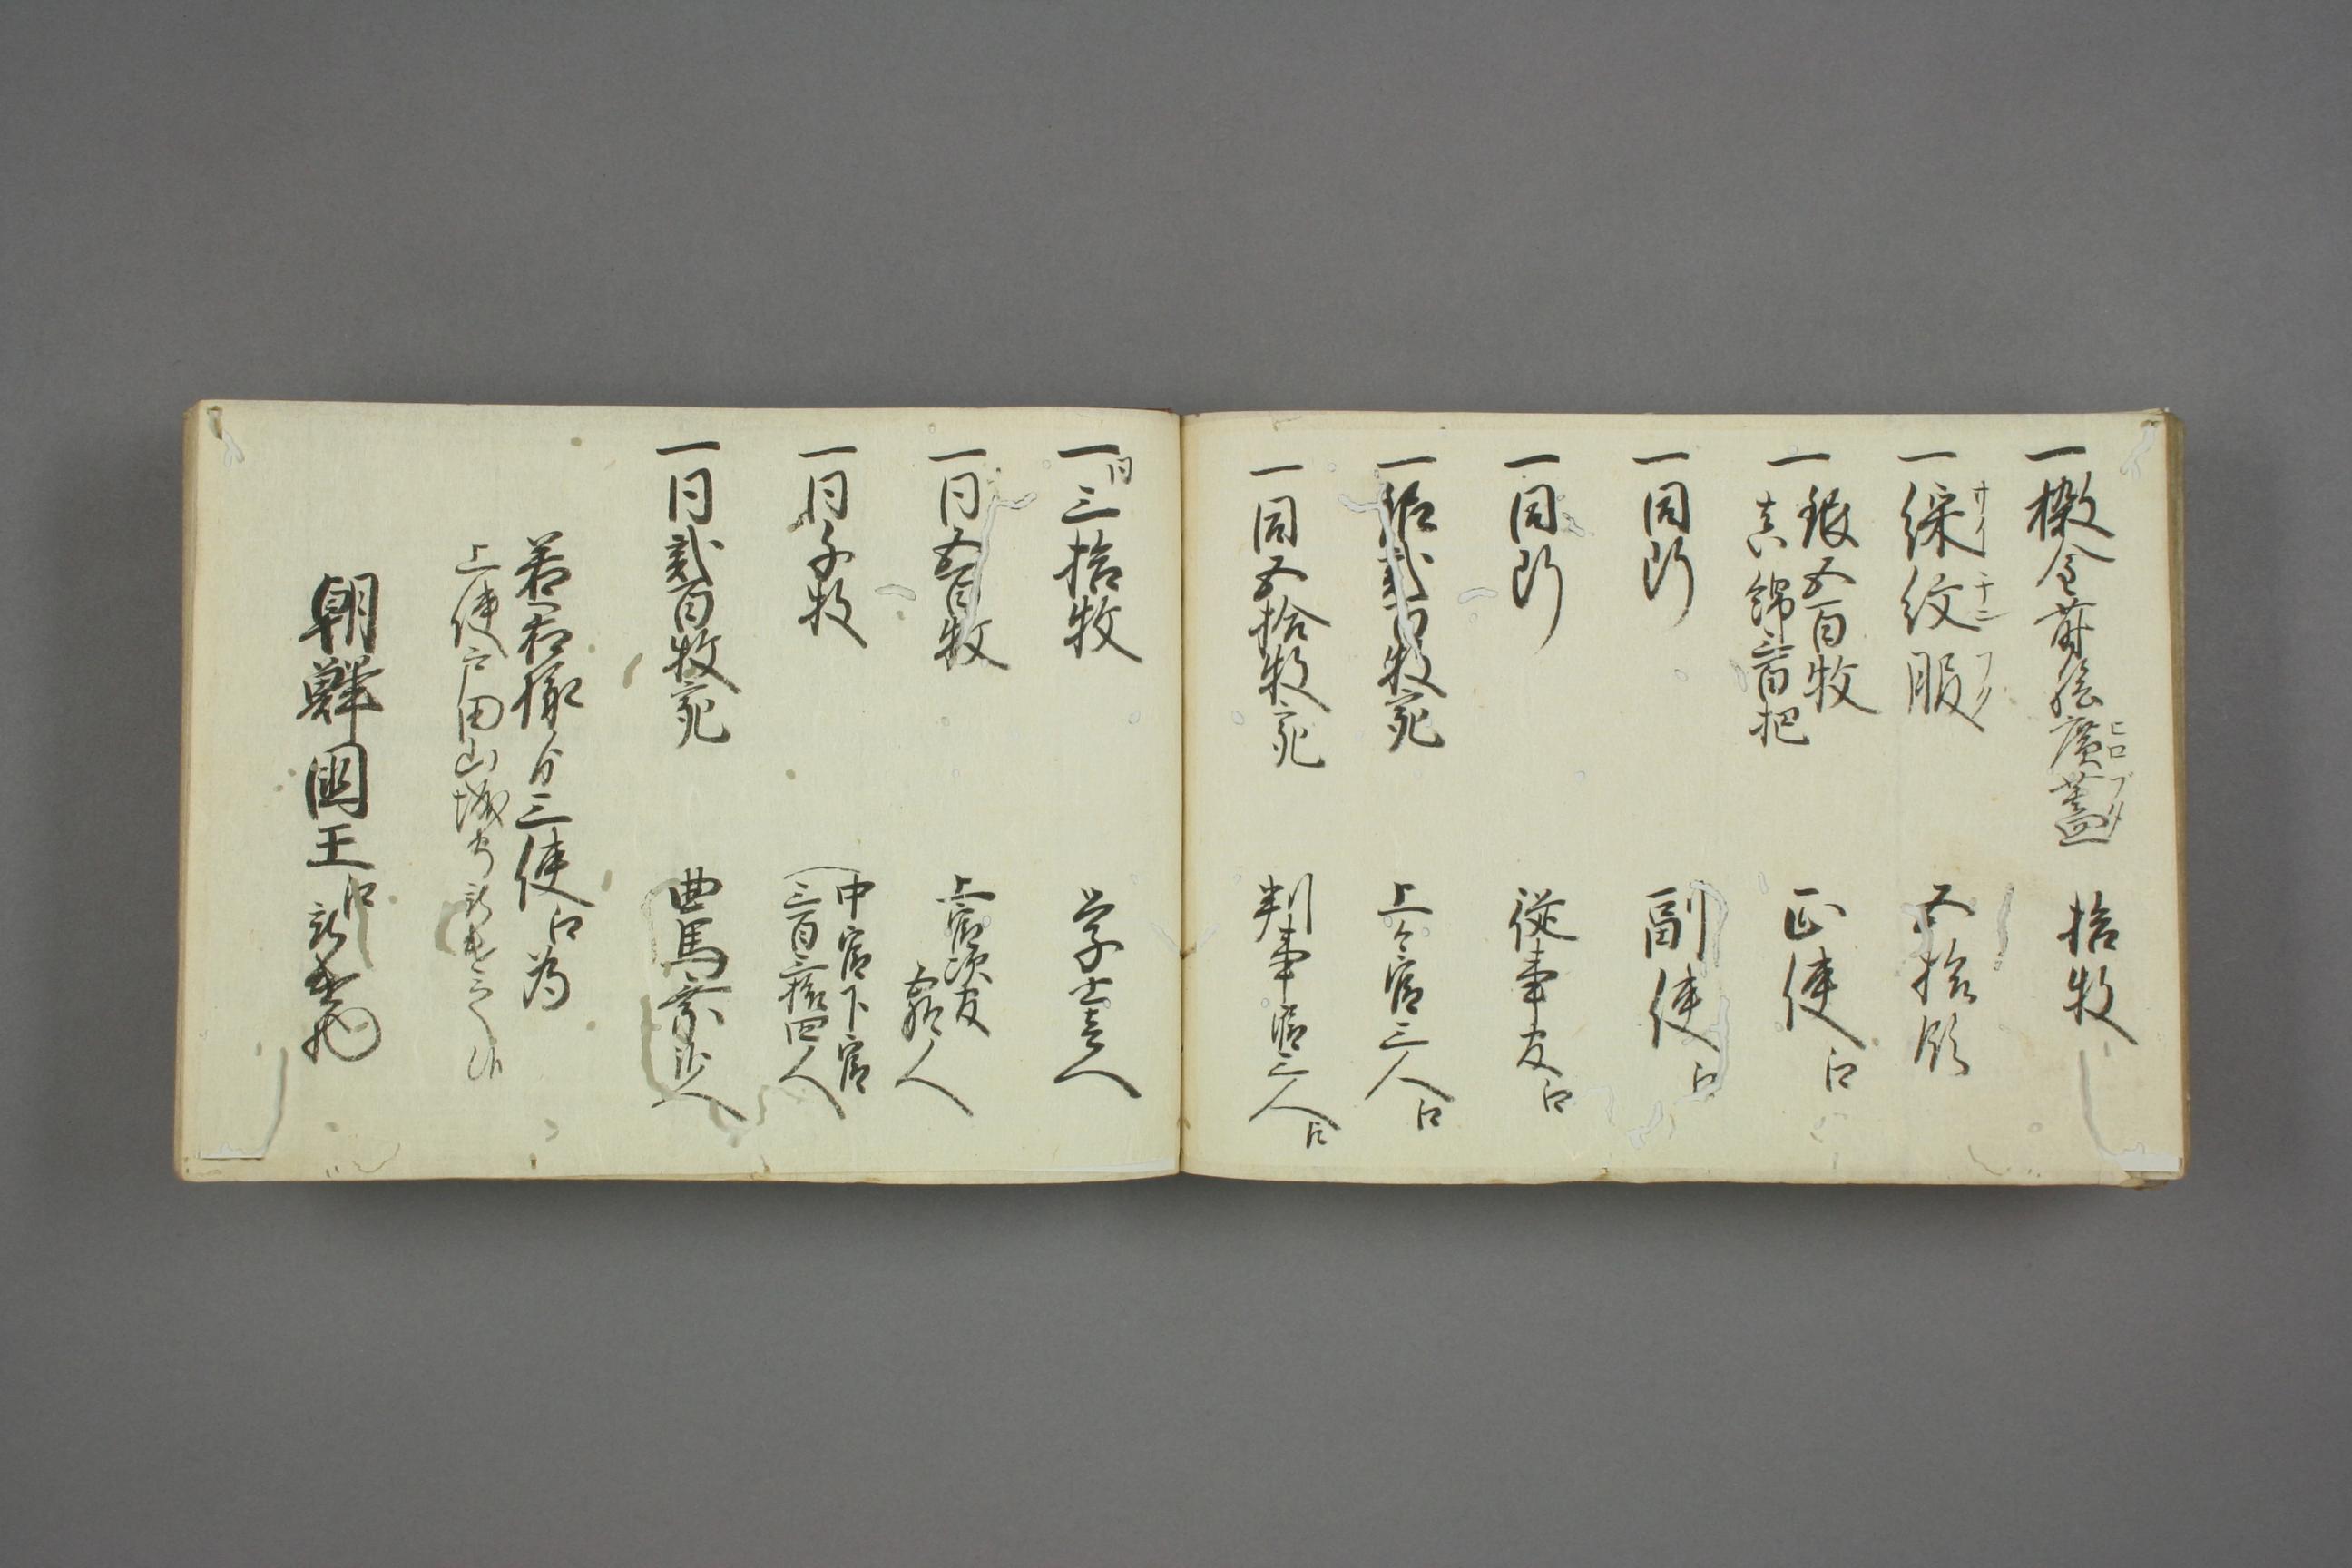 一撒金蒔絵廣蓋 拾枚
ヒロブタ
一綵紋服 五拾領
一銀五百枚
真綿三百把 正使江
一同断 副使江
一同断 従事官江
一銀貳百枚宛 上々官三人江
一同五拾枚宛 判事官三人江
一同三拾枚 学士壱人
一同五百枚 上官次官 人
一同千枚 中官下官
三百三拾四人
一同貳百枚宛 曲馬乗 人
若君様より三使江為
上使戸田山城守
朝鮮國王江